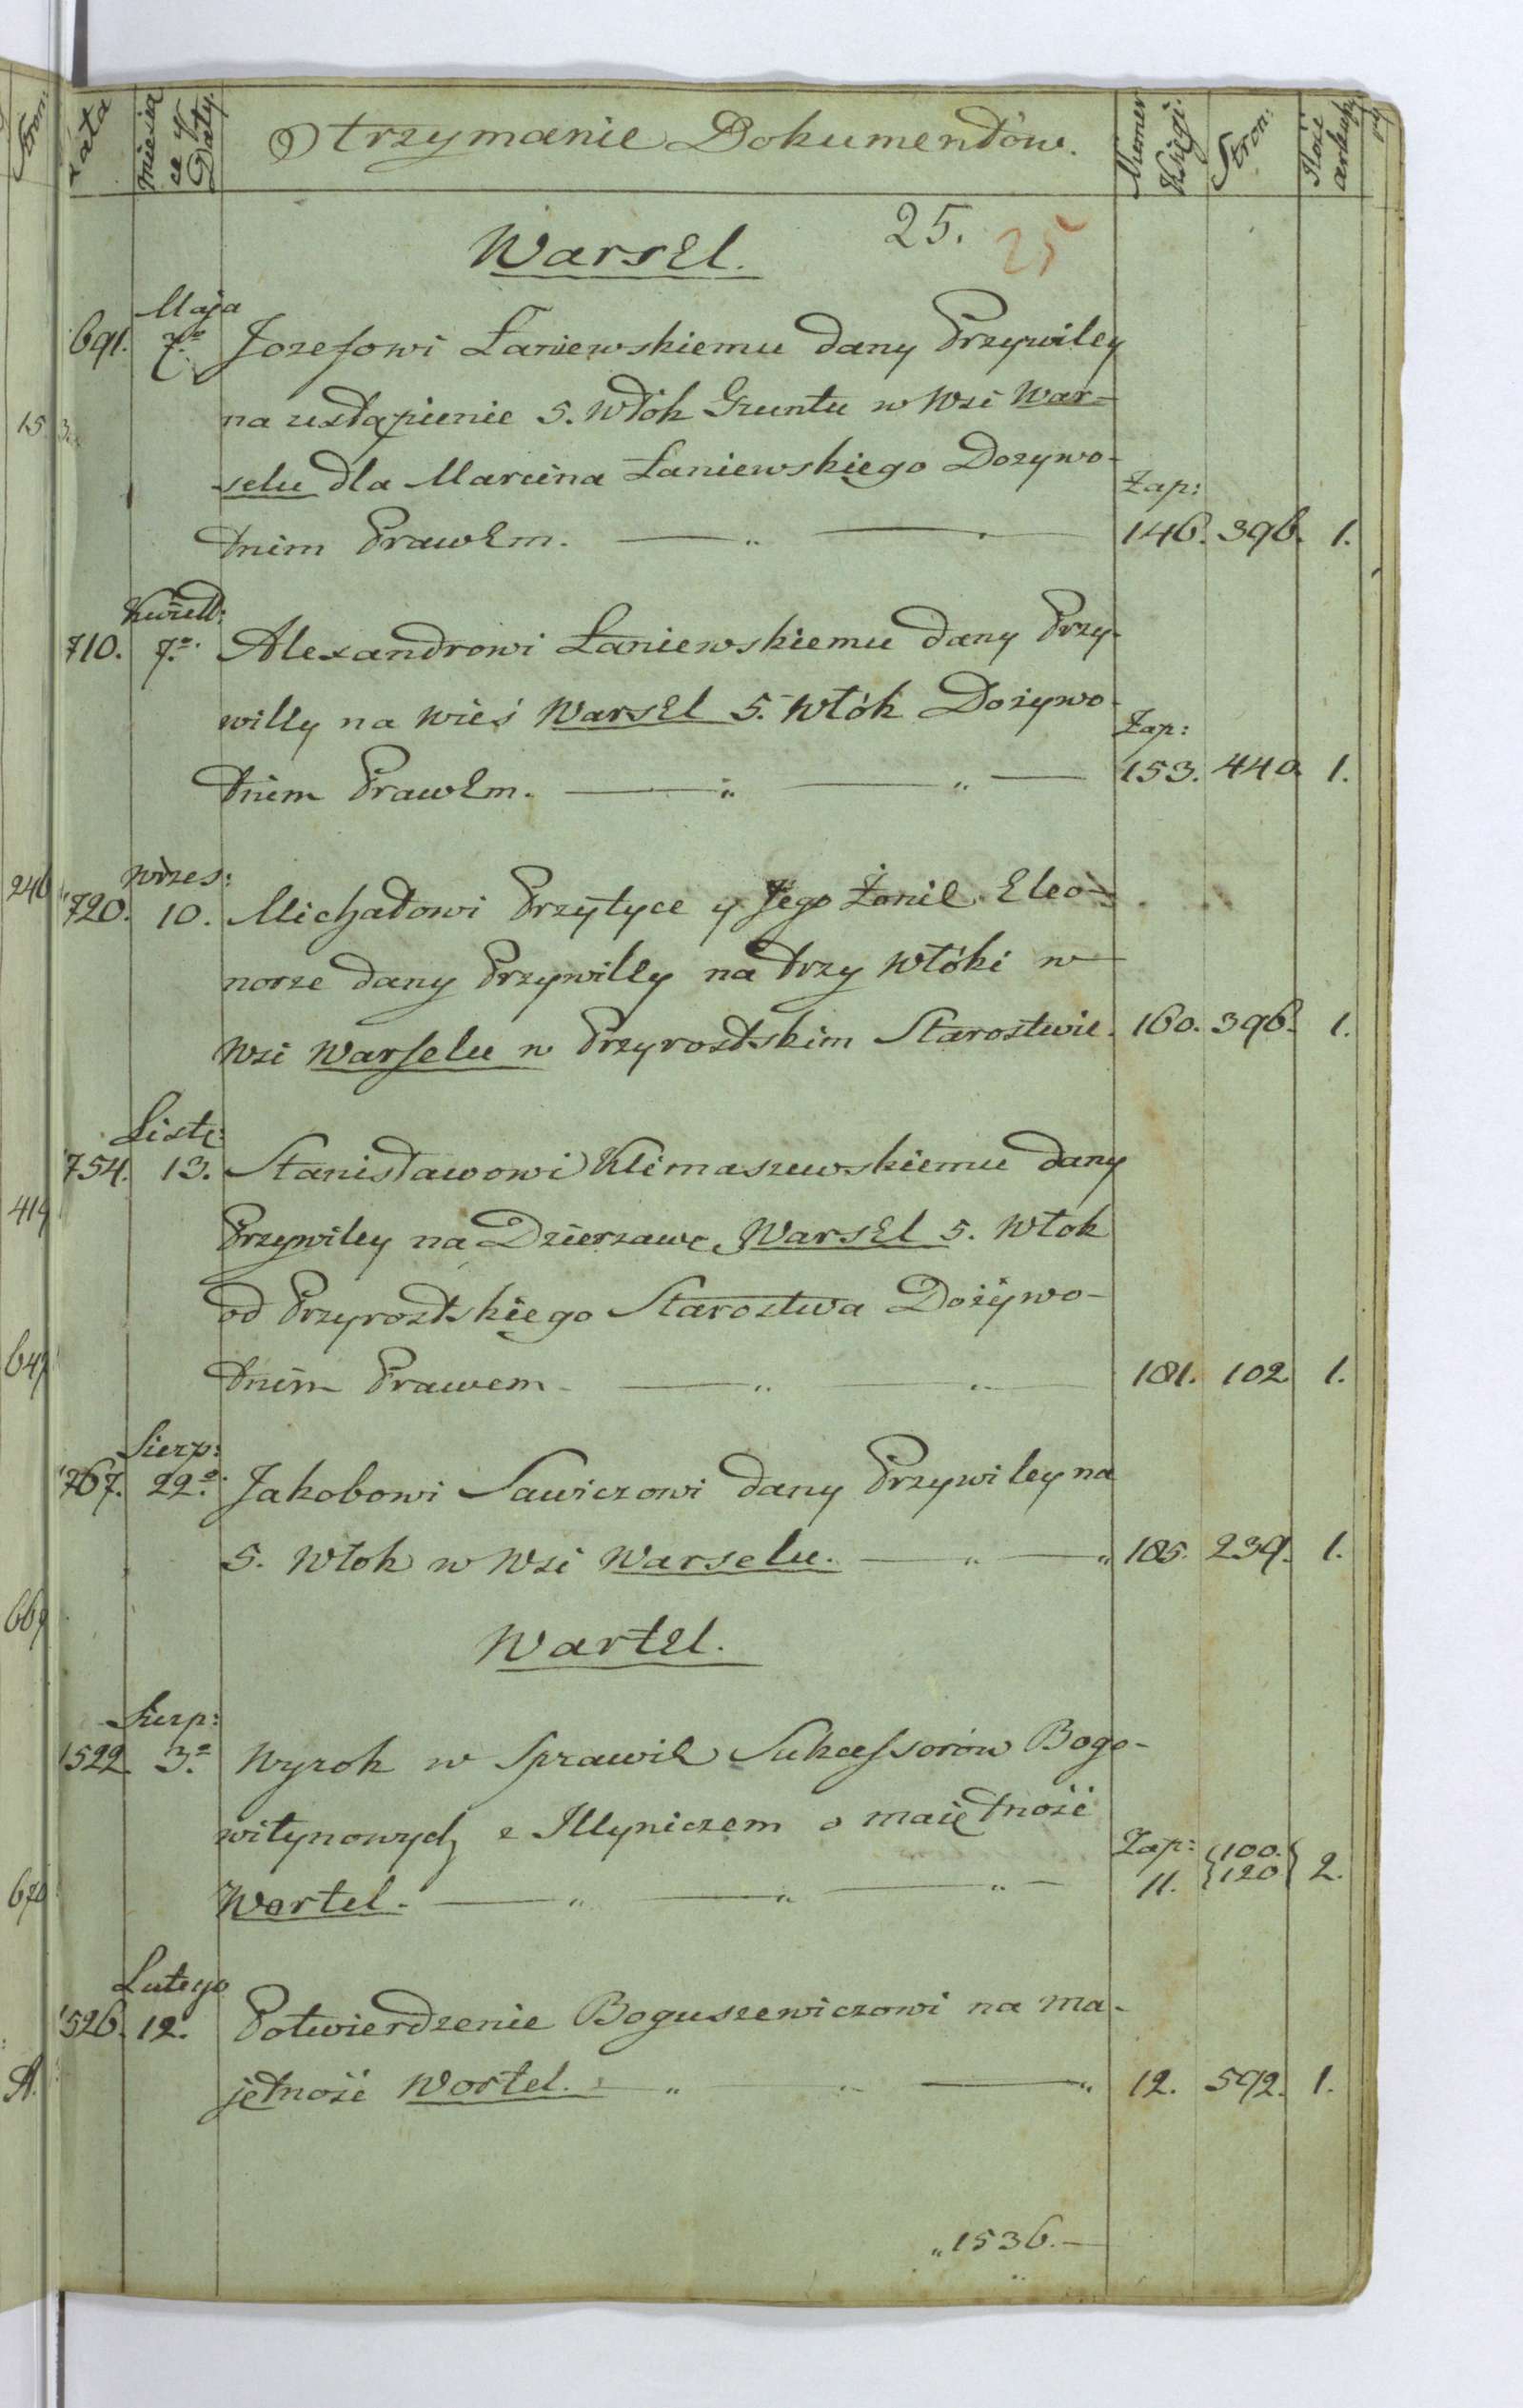 Lata miesiąc y Daty. Otrzymanie Dokumentów. Numer Księgi. Stron: Ilość arkuszy
Warsel. 25. 25
Maja
691. 7º Jozefowi Łaniewskiemu dany Przywiley
na ustąpienie 5. Włók Gruntu w Wsi War-
selu dla Marcina Łaniewskiego Dozywo-
Zap:
tnim Prawem. 146. 396. 1.
Kwiet:
710. 7º Alexandrowi Łaniewskiemu dany Przy-
willy na wieś Warsel 5. Włók Dożywo-
Zap:
tniem Prawem. 153. 440. 1.
Wrzes:
720. 10. Michałowi Przytyce y Jego Żonie Eleo-
norze dany Przywilly na trzy Włóki w
Wsi Warselu w Przyrostskim Starostwie. 160. 396. 1.
List:
754. 13. Stanisławowi Klimaszewskiemu dany
Przywiley na Dzierzawę Warsel 5. Włok
od Przyrostskiego Starostwa Dożywo-
tnim Prawem. 181. 102. 1.
Sierp:
767. 22º Jakobowi Sawiczowi dany Przywiley na
5. Włok w Wsi Warselu. 185. 239. 1.
Wartel.
Sierp:
1522. 3º Wyrok w Sprawie Sukcessorów Bogo-
witynowych z Illyniczem o maiętność
Zap: 100.
Wartel. 11. 120 2.
Lutego
526. 12. Potwierdzenie Boguszewiczowi na ma-
jętność Wortel. 12. 592. 1.
1536.